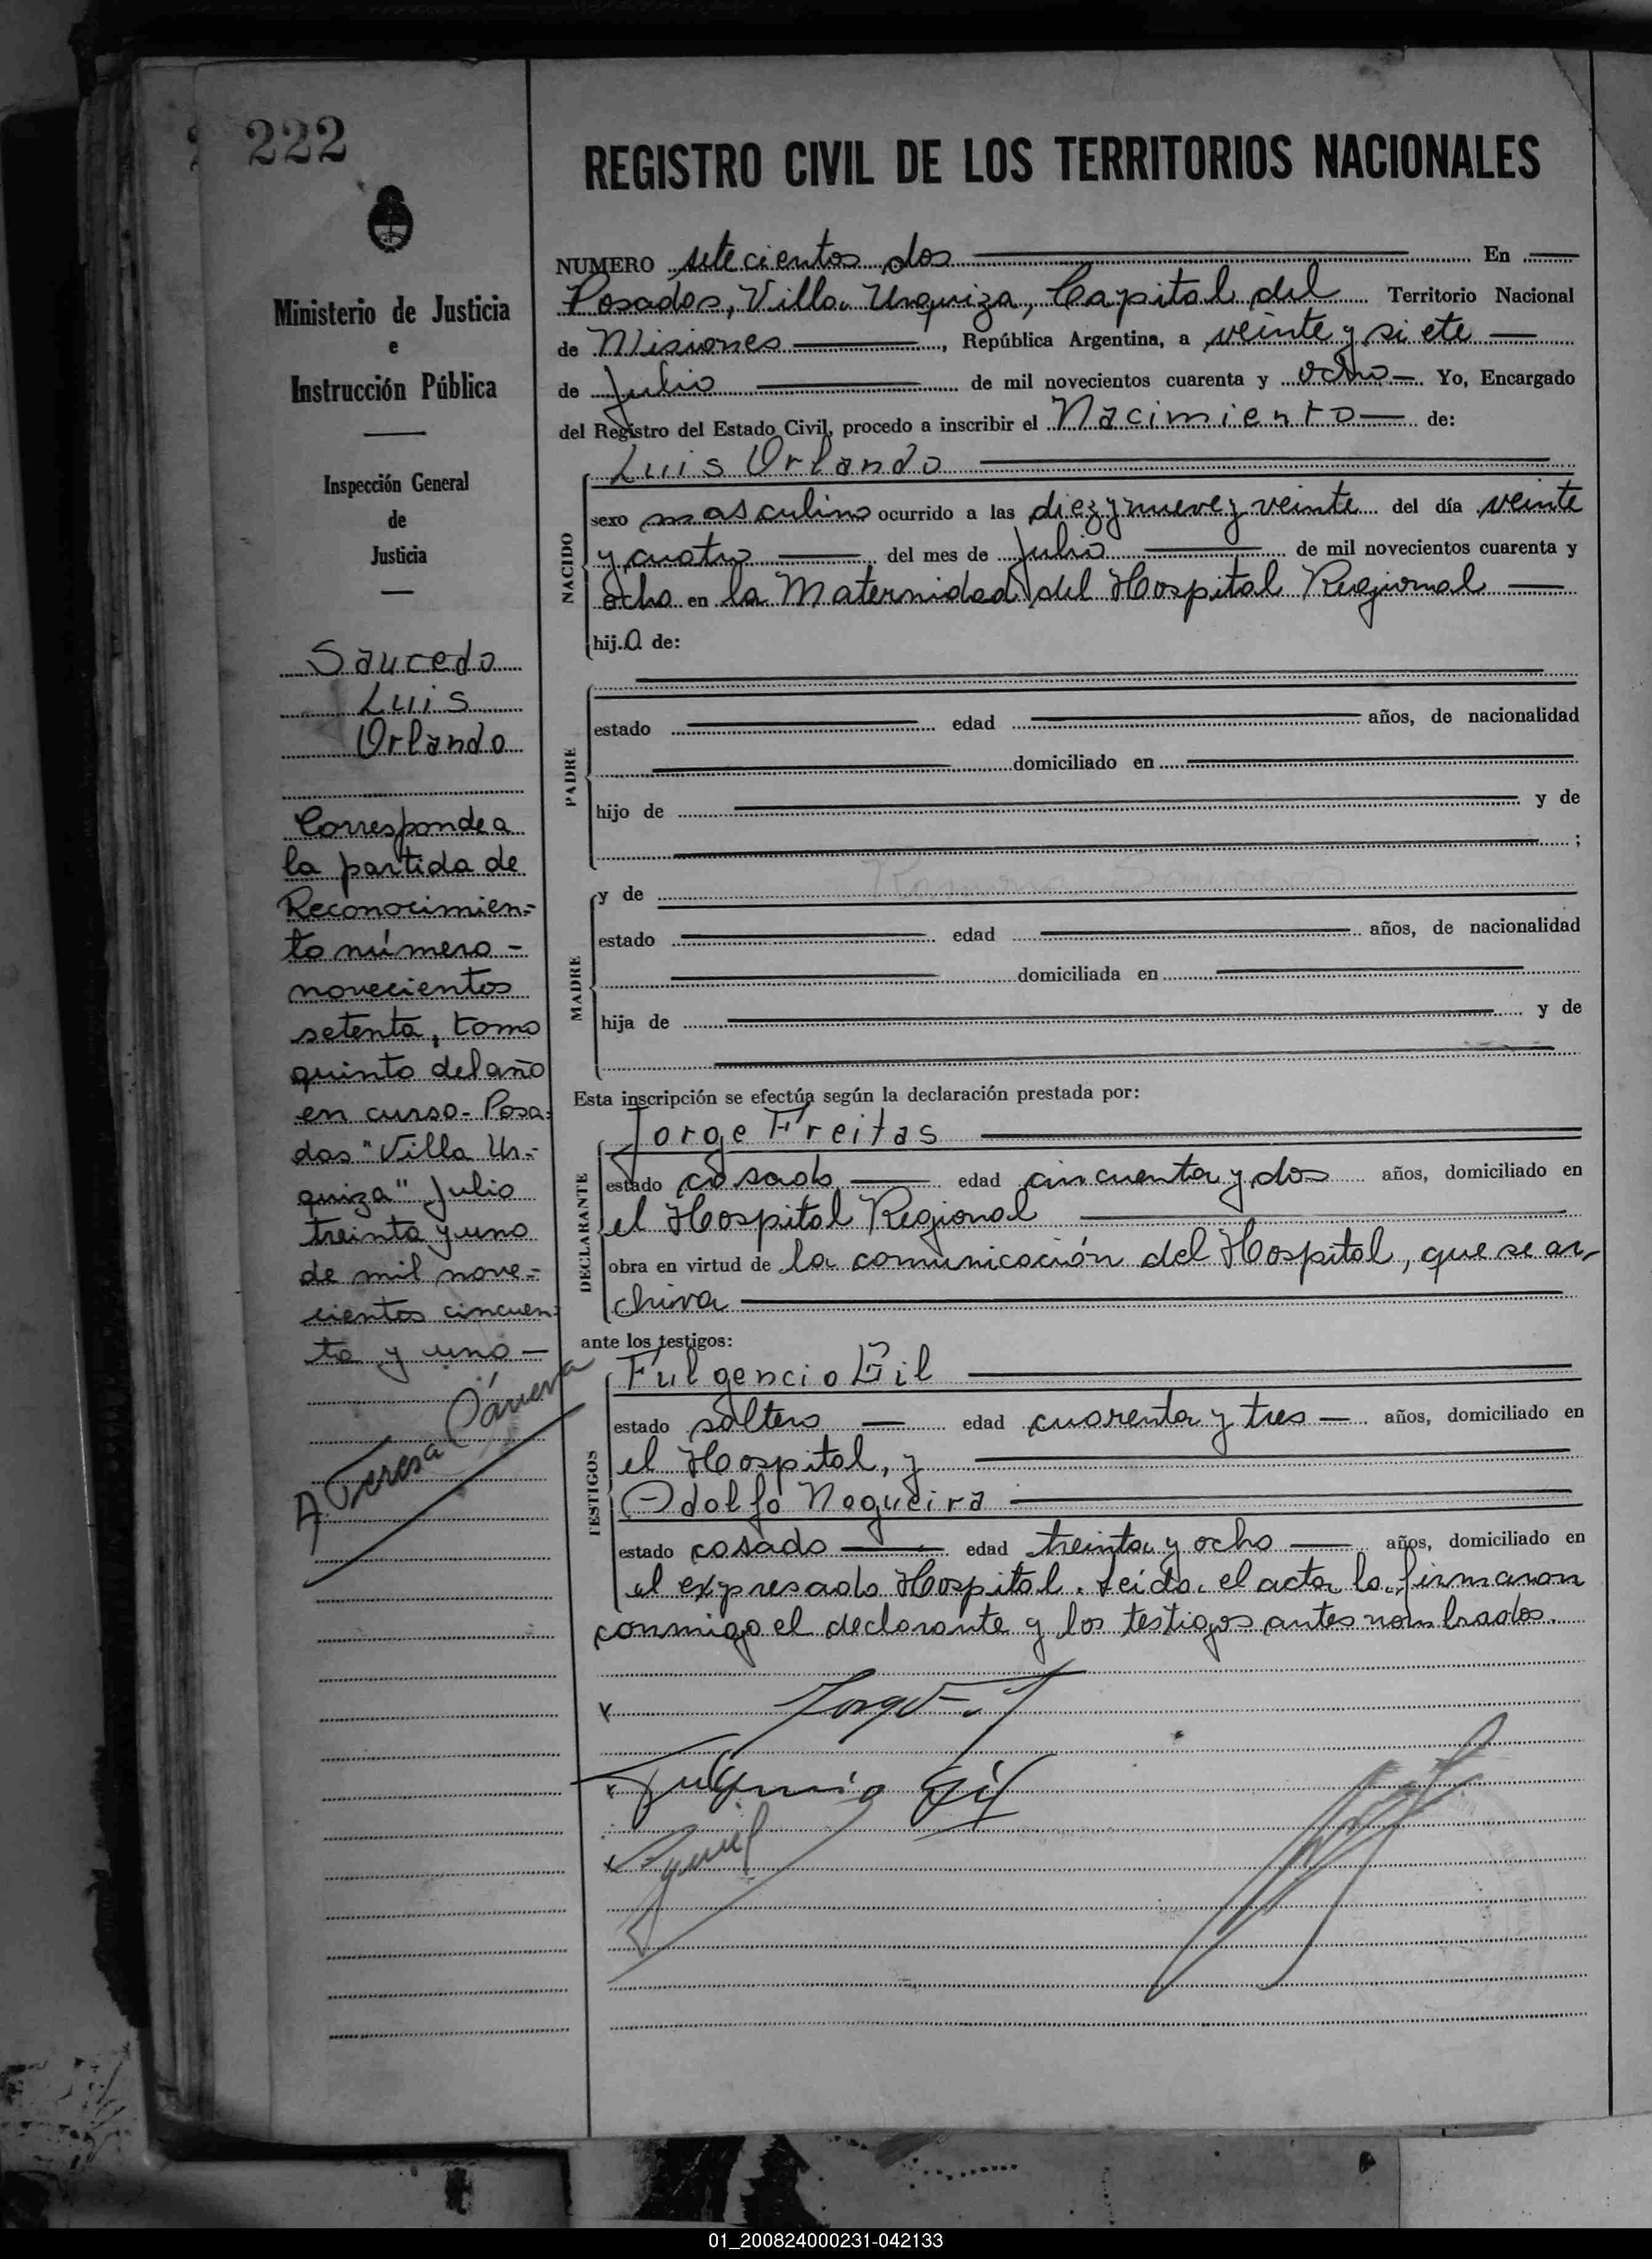 222
Ministerio de Justicia
e
Instrucción Pública
Inspección General
de
Justicia
Saucedo
Luis
Orlando
Corresponde a
la partida de
Reconocimien=
to número =
novecientos
setenta, tomo
quinto del año
en curso - Posa=
das "Villa Ur=
quiza" Julio
treinta y uno
de mil nove=
cientos cincuen=
ta y uno —
A. Teresa
REGISTRO CIVIL DE LOS TERRITORIOS NACIONALES
NUMERO setecientos dos En
Posadas, Villa Urquiza, Capital del Territorio Nacional
de Misiones, República Argentina, a veinte y siete
de Julio de mil novecientos cuarenta y ocho Yo, Encargado
del Registro del Estado Civil, procedo a inscribir el Nacimiento de:
Luis Orlando
NACIDO
sexo masculino ocurrido a las diez y nueve y veinte del día veinte
y cuatro del mes de Julio de mil novecientos cuarenta y
ocho en la Maternidad del Hospital Regional
hijo de:
PADRE
estado edad años, de nacionalidad
domiciliado en
hijo de y de
;
MADRE
y de
estado edad años, de nacionalidad
domiciliada en
hija de y de
Esta inscripción se efectúa según la declaración prestada por:
DECLARANTE
Jorge Freitas
estado casado edad cincuenta y dos años, domiciliado en
el Hospital Regional
obra en virtud de la comunicación del Hospital, que se ar-
chiva
ante los testigos:
TESTIGOS
Fulgencio Gil
estado soltero edad cuarenta y tres años, domiciliado en
el Hospital, y
Adolfo Nogueira
estado casado edad treinta y ocho años, domiciliado en
el expresado Hospital. Leida el acta la firmaron
conmigo el declarante y los testigos antes nombrados.
Fulgencio Gil
01_200824000231-042133